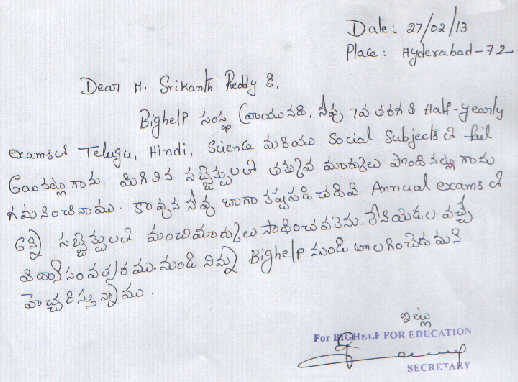 Date: 27/02/13
Place: Hyderabad-72
Dear M. Srikanth Reddy కి,
Bighelp సంస్థ వ్రాయునది, నీవు 7వ తరగతి Half-yearly
examsలో Telugu, Hindi, Science మరియు Social Subjects లో fail
మిగిలిన సబ్జెక్టులలో తక్కువ మార్కులు పొందినట్లుగాను
గమనించినాము. కావున నీవు బాగా కష్టపడి చదివి Annual exams లో
అన్ని సబ్జెక్టులలో మంచి మార్కులు సాధించవలెను. లేనియెడల వచ్చే
విద్యాసంవత్సరము నుండి నిన్ను Bighelp నుండి తొలగించెదమని
హెచ్చరిస్తున్నాము.
ఇట్లు
For BIGHELP FOR EDUCATION
SECRETARY